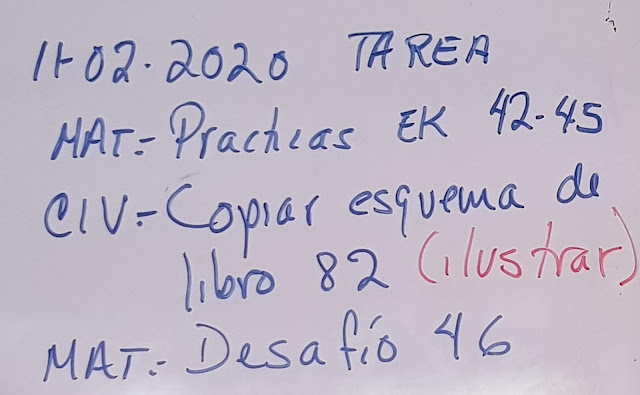 11-02-2020 TAREA
MAT.- Practicas EK 42-45
CIV.- Copiar esquema de
libro 82 (ilustrar)
MAT.- Desafío 46